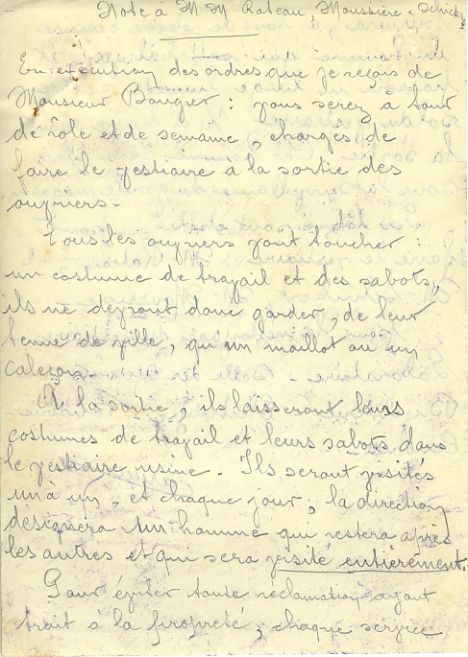 Note à M M Rateau Moussière
En exécution des ordres que je reçois de
Monsieur Bougier : vous serez à tour
de rôle et de semaine, chargés de
faire le vestiaire à la sortie des
ouvriers.
Tous les ouvriers vont toucher :
un costume de travail et des sabots,
ils ne devront donc garder, de leur
tenue de ville, qu'un maillot ou un
caleçon.
A la sortie, ils laisseront leurs
costumes de travail et leurs sabots dans
le vestiaire usine. Ils seront visités
un à un, et chaque jour, la direction
désignera un homme qui restera après
les autres et qui sera visité entièrement.
Pour éviter toute réclamation ayant
trait à la propreté, chaque